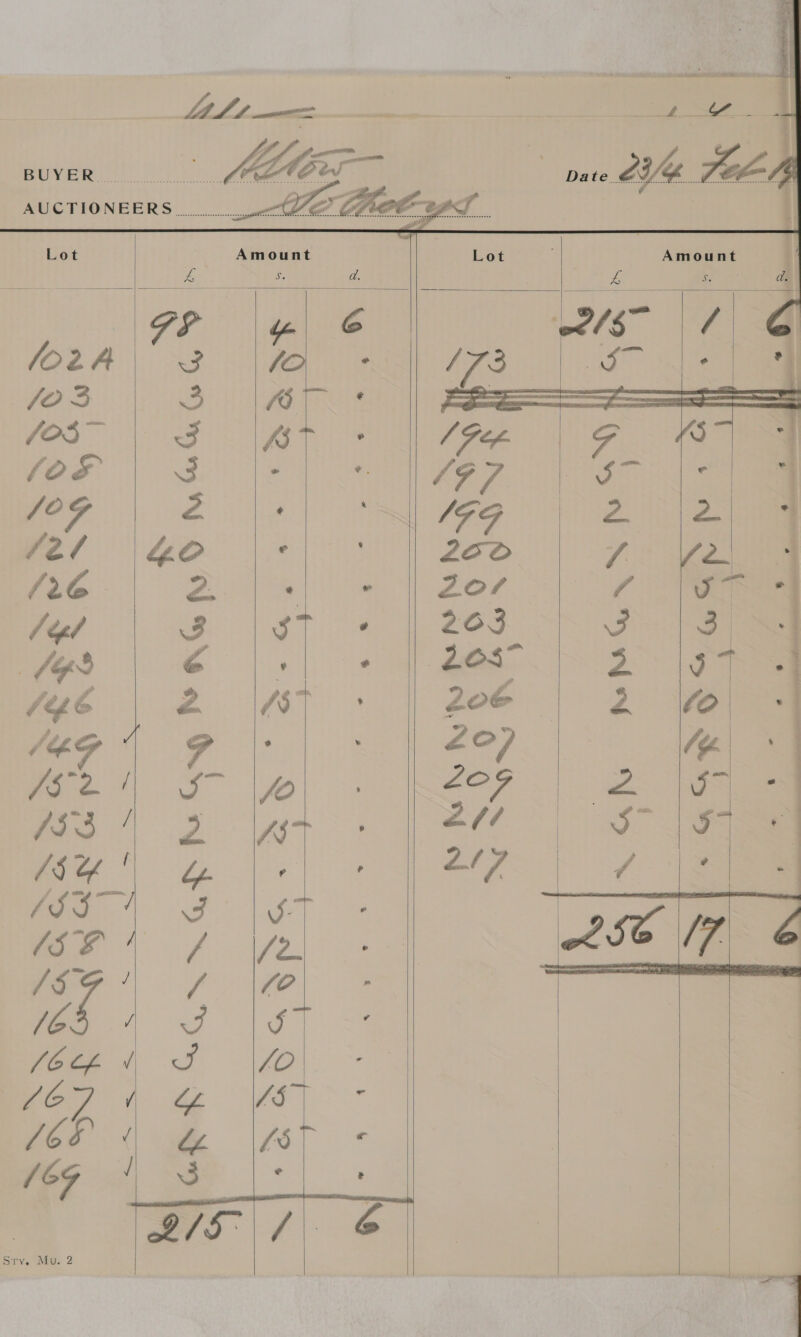 BUYER
Date 23/4 Feb 19
AUCTIONEERS Sotheby's
Lot Amount Lot Amount
£ s. d. £ s. d.
98 4 6 215 1 6
102A 3 10 - 173 5 - -
103 3 15 -
105 3 15 - 194 9 15 -
108 3 - - 197 5 - -
109 2 - - 199 2 2 -
121 40 - - 200 1 12 -
126 2 - - 201 1 5 -
141 3 5 - 203 3 3 -
143 6 - - 205 2 5 -
146 2 15 - 206 2 10 -
149 / 9 - - 207 14 -
152 / 5 10 - 209 2 5 -
153 / 2 15 - 211 5 5 -
154 / 4 - - 217 1 - -
155 / 3 5 -
158 / 1 12 - 256 17 6
159 / 1 10 -
163 / 3 5 -
164 / 3 10 -
167 / 4 15 -
168 / 4 15 -
169 / 3 - -
215 1 6
Sty. Mu. 2